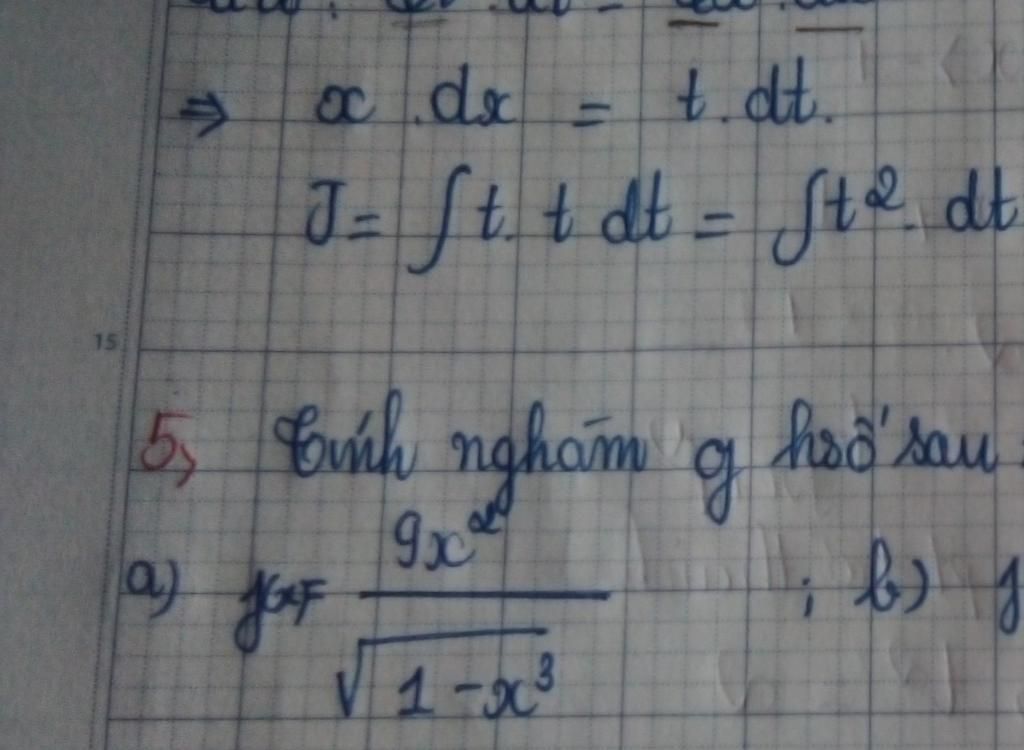 ⇒ x . dx = t . dt.
J = ∫ t. t dt = ∫ t². dt
15
5, Tính ngham g hsố sau :
a) f(x) = 9x² / √(1 - x³) ; b) f